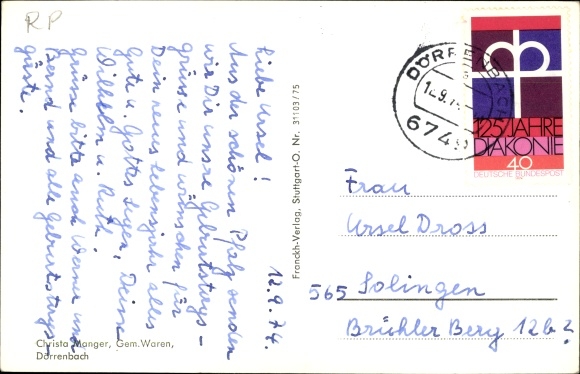 RP
12.9.74.
Liebe Ursel!
Aus der schönen Pfalz senden
wir Dir unsre Geburtstags-
grüsse und wünschen für
Dein neues Lebensjahr alles
Gute u. Gottes Segen, Deine
Wilhelm u. Ruth.
Grüsse bitte auch Werner und
Bernd und alle Geburtstags-
gäste.
Christa Manger, Gem.Waren,
Dörrenbach
Franckh-Verlag, Stuttgart-O. Nr. 31103/75
DÖRRENBACH
12.9.74
6749
125 JAHRE
DIAKONIE
40
DEUTSCHE BUNDESPOST
Frau
Ursel Dross
565 Solingen
Brühler Berg 12b?